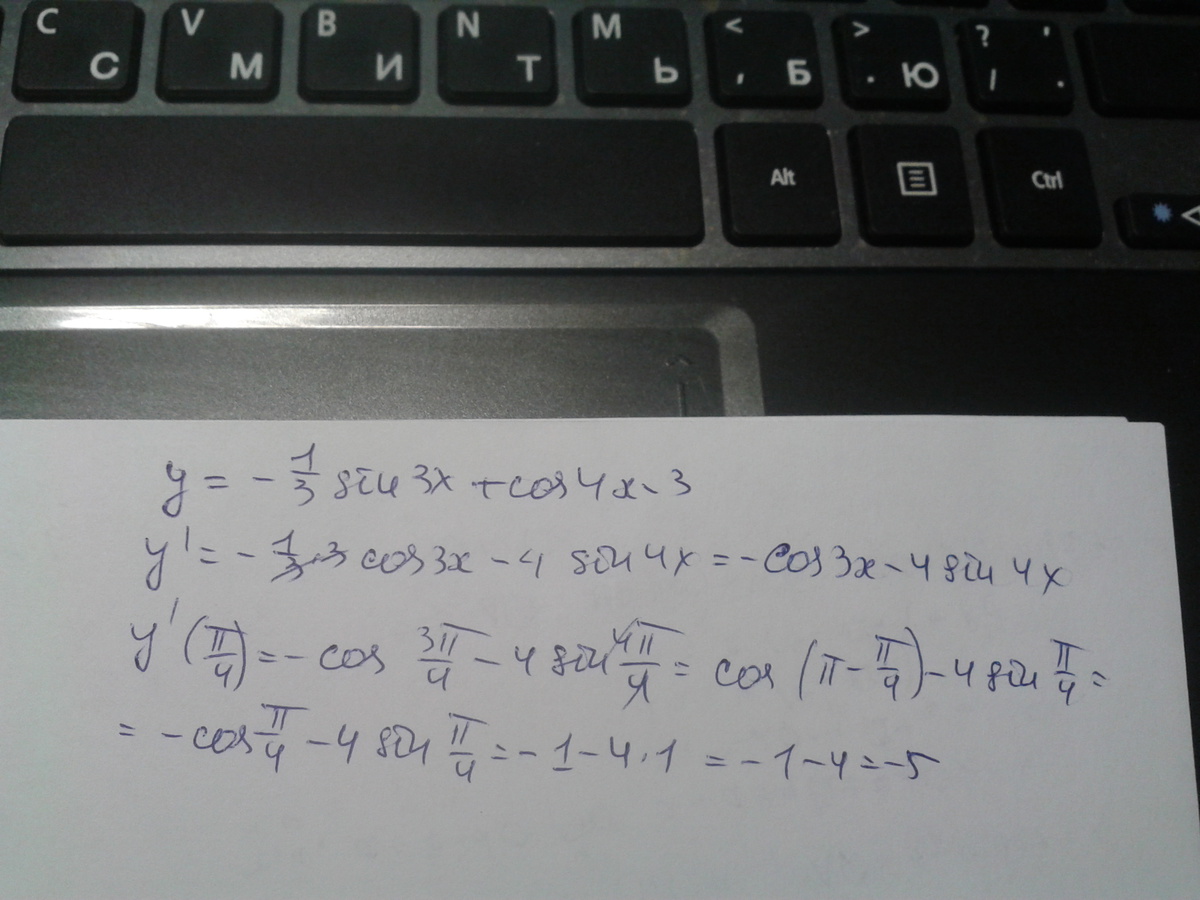 C С V М B И N Т M Ь < , Б > . Ю ? / ' .
Alt Ctrl
y = - 1/3 sin 3x + cos 4x - 3
y' = - 1/3 · 3 cos 3x - 4 sin 4x = - cos 3x - 4 sin 4x
y' (π/4) = - cos 3π/4 - 4 sin 4π/4 = cos (π - π/4) - 4 sin π/4 =
= - cos π/4 - 4 sin π/4 = - 1 - 4 · 1 = - 1 - 4 = - 5